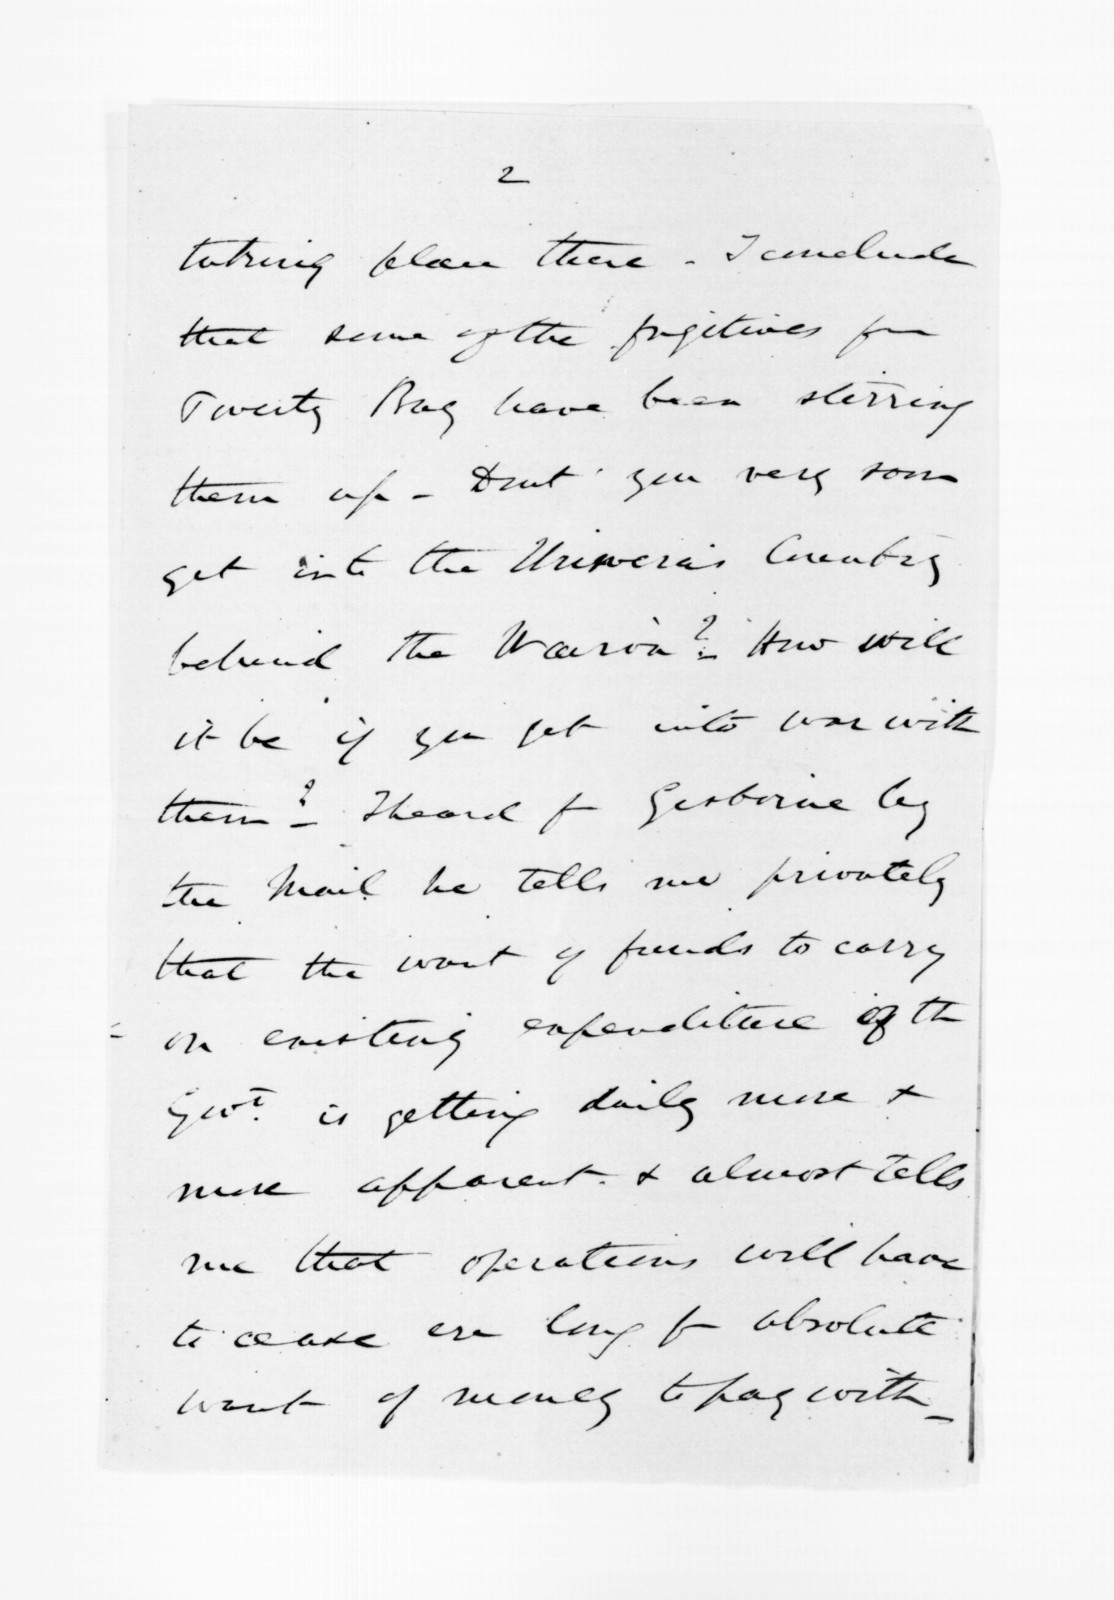 2
taking place there - I conclude
that some of the fugitives fm
Poverty Bay have been stirring
them up - Dont you very soon
get into the Uriwera's Country
behind the Wairoa? - How will
it be if you get into war with
them? - I heard fm Gisborne by
the Mail. he tells me privately
that the want of funds to carry
on existing expenditure of the
Govt. is getting daily more &
more apparent. & almost tells
me that operations will have
to cease ere long fm absolute
want of money to pay with -